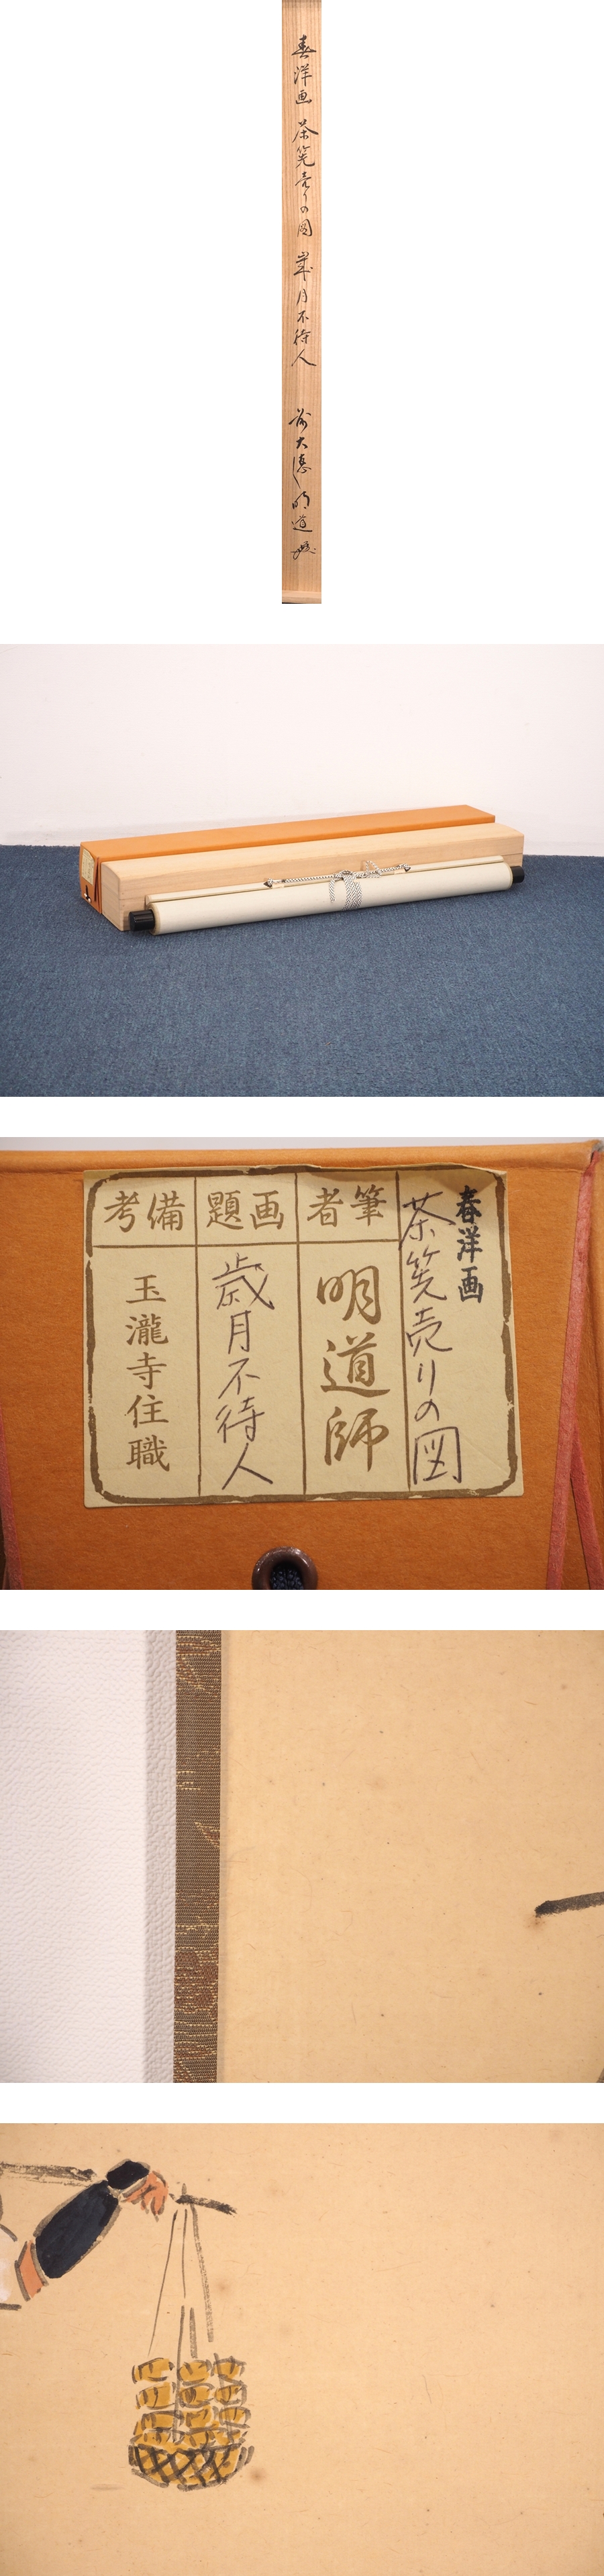 春洋画 茶筅売りの図 歳月不待人
前大徳 明道
春洋画
茶筅売りの図
筆者
明道師
画題
歳月不待人
備考
玉瀧寺住職